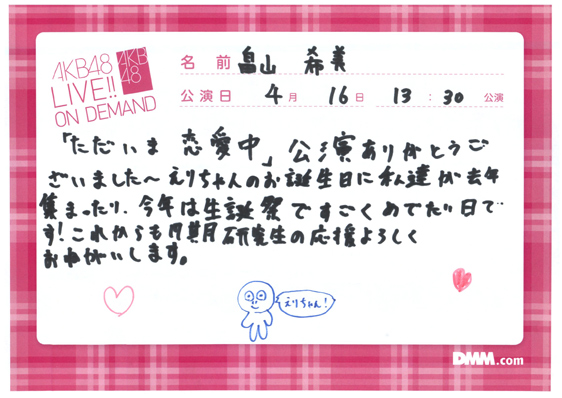 AKB48
LIVE!!
ON DEMAND
AKB
48
名前 畠山 希美
公演日 4月 16日 13:30 公演
「ただいま 恋愛中」公演ありがとうご
ざいました〜えりちゃんのお誕生日に私達が去年
集まったり、今年は生誕祭ですごくめでたい日で
す!これからも9期研究生の応援よろしく
おねがいします。
えりちゃん!
DMM.com